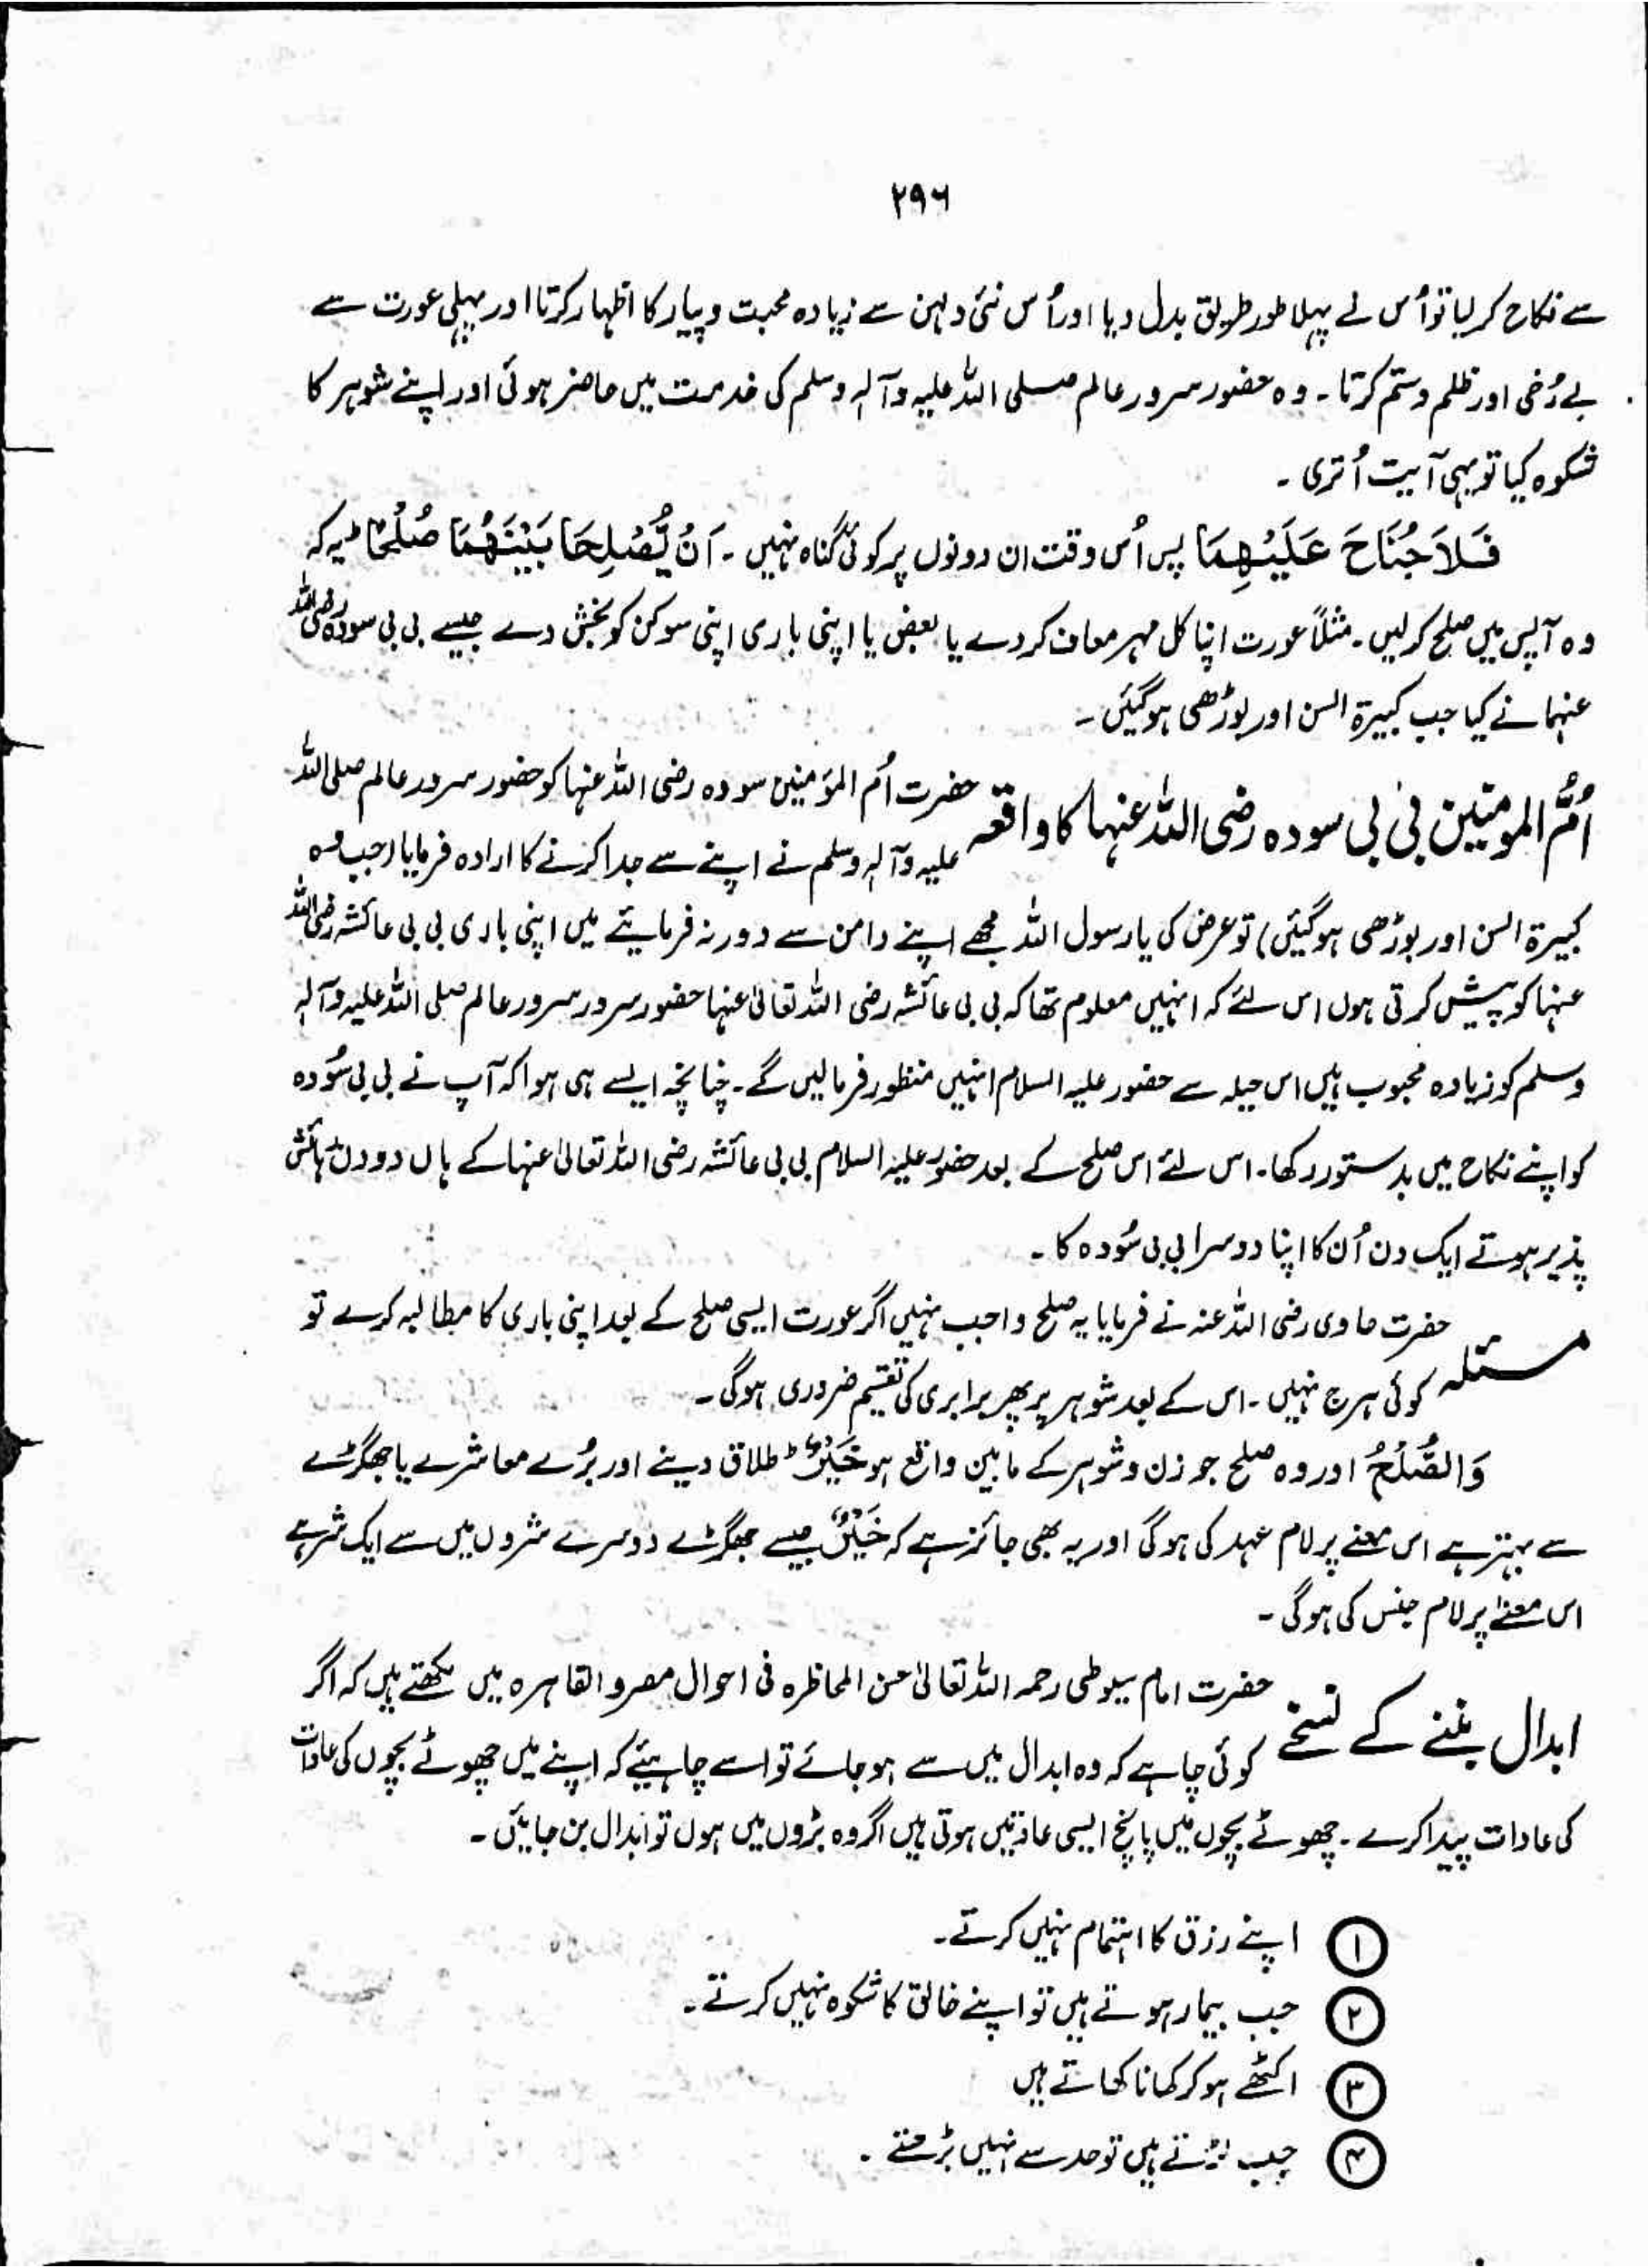 ۲۹۶
سے نکاح کر لیا تو اُس نے پہلا طور طریق بدل دیا اور اُس نئی دلہن سے زیادہ محبت و پیار کا اظہار کرتا اور پہلی عورت سے
بے رُخی اور ظلم و ستم کرتا ۔ وہ حضور سرور عالم صلی اللہ علیہ وآلہ وسلم کی خدمت میں حاضر ہوئی اور اپنے شوہر کا
شکوہ کیا تو یہی آیت اُتری ۔
فَلَا جُنَاحَ عَلَيْهِمَا پس اُس وقت ان دونوں پر کوئی گناہ نہیں ۔ اَنْ يُّصْلِحَا بَيْنَهُمَا صُلْحًا ط یہ کہ
وہ آپس میں صلح کر لیں ۔ مثلاً عورت اپنا کل مہر معاف کر دے یا بعض یا اپنی باری اپنی سوکن کو بخش دے جیسے بی بی سودہ رضی اللہ
عنہما نے کیا جب کبیرۃ السن اور بوڑھی ہوگئیں ۔
اُمُّ المومنین بی بی سودہ رضی اللہ عنہا کا واقعہ
حضرت اُم المؤمنین سودہ رضی اللہ عنہا کو حضور سرور عالم صلی اللہ
علیہ وآلہ وسلم نے اپنے سے جدا کرنے کا ارادہ فرمایا (جب وہ
کبیرۃ السن اور بوڑھی ہوگئیں) تو عرض کی یا رسول اللہ مجھے اپنے دامن سے دور نہ فرمایئے میں اپنی باری بی بی عائشہ رضی اللہ
عنہا کو پیش کرتی ہوں اس لئے کہ انہیں معلوم تھا کہ بی بی عائشہ رضی اللہ تعالیٰ عنہا حضور سرور سرور عالم صلی اللہ علیہ وآلہ
وسلم کو زیادہ محبوب ہیں اس حیلہ سے حضور علیہ السلام انہیں منظور فرما لیں گے ۔ چنانچہ ایسے ہی ہوا کہ آپ نے بی بی سُودہ
کو اپنے نکاح میں بدستور رکھا ۔ اس لئے اس صلح کے بعد حضور علیہ السلام بی بی عائشہ رضی اللہ تعالیٰ عنہا کے ہاں دو دن رہائش
پذیر ہوتے ایک دن اُن کا اپنا دوسرا بی بی سُودہ کا ۔
مسئلہ
حضرت حاوی رضی اللہ عنہ نے فرمایا یہ صلح واجب نہیں اگر عورت ایسی صلح کے بعد اپنی باری کا مطالبہ کرے تو
کوئی ہرج نہیں ۔ اس کے بعد شوہر پر پھر برابری کی تقسیم ضروری ہوگی ۔
وَالصُّلْحُ اور وہ صلح جو زن و شوہر کے مابین واقع ہو خَيْرٌ ط طلاق دینے اور بُرے معاشرے یا جھگڑے
سے بہتر ہے اس معنے پر لام عہد کی ہوگی اور یہ بھی جائز ہے کہ خَيْرٌ جیسے جھگڑے دوسرے شروں میں سے ایک شر ہے
اس معنےٰ پر لام جنس کی ہوگی ۔
ابدال بننے کے نسخے
حضرت امام سیوطی رحمہ اللہ تعالیٰ حسن المحاظرہ فی احوال مصر و القاہرہ میں لکھتے ہیں کہ اگر
کوئی چاہے کہ وہ ابدال میں سے ہو جائے تو اسے چاہیئے کہ اپنے میں چھوٹے بچوں کی عادات
کی عادات پیدا کرے ۔ چھوٹے بچوں میں پانچ ایسی عادتیں ہوتی ہیں اگر وہ بڑوں میں ہوں تو ابدال بن جائیں ۔
۱ اپنے رزق کا اہتمام نہیں کرتے ۔
۲ جب بیمار ہوتے ہیں تو اپنے خالق کا شکوہ نہیں کرتے ۔
۳ اکٹھے ہو کر کھانا کھاتے ہیں
۴ جب لڑتے ہیں تو حد سے نہیں بڑھتے ۔